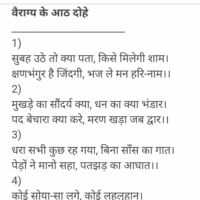 वैराग्य के आठ दोहे
1)
सुबह उठे तो क्या पता, किसे मिलेगी शाम।
क्षणभंगुर है जिंदगी, भज ले मन हरि-नाम।।
2)
मुखड़े का सौंदर्य क्या, धन का क्या भंडार।
पद बेचारा क्या करे, मरण खड़ा जब द्वार।।
3)
धरा सभी कुछ रह गया, बिना साँस का गात।
पेड़ों ने मानो सहा, पतझड़ का आघात।।
4)
कोई सोया-सा लगे, कोई लहूलुहान।